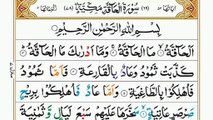 سُوْرَةُ الْحَاقَّةِ مَكِّيَّةٌ
بِسْمِ اللّٰهِ الرَّحْمٰنِ الرَّحِيْمِ
اَلْحَآقَّةُ ۙ مَا الْحَآقَّةُ ۚ وَمَاۤ اَدْرٰىكَ مَا الْحَآقَّةُ ؕ
كَذَّبَتْ ثَمُوْدُ وَعَادٌۢ بِالْقَارِعَةِ فَاَمَّا ثَمُوْدُ
فَاُهْلِكُوْا بِالطَّاغِيَةِ وَاَمَّا عَادٌ فَاُهْلِكُوْا بِرِيْحٍ
صَرْصَرٍ عَاتِيَةٍ ۙ سَخَّرَهَا عَلَيْهِمْ سَبْعَ لَيَالٍ وَّثَمٰنِيَةَ